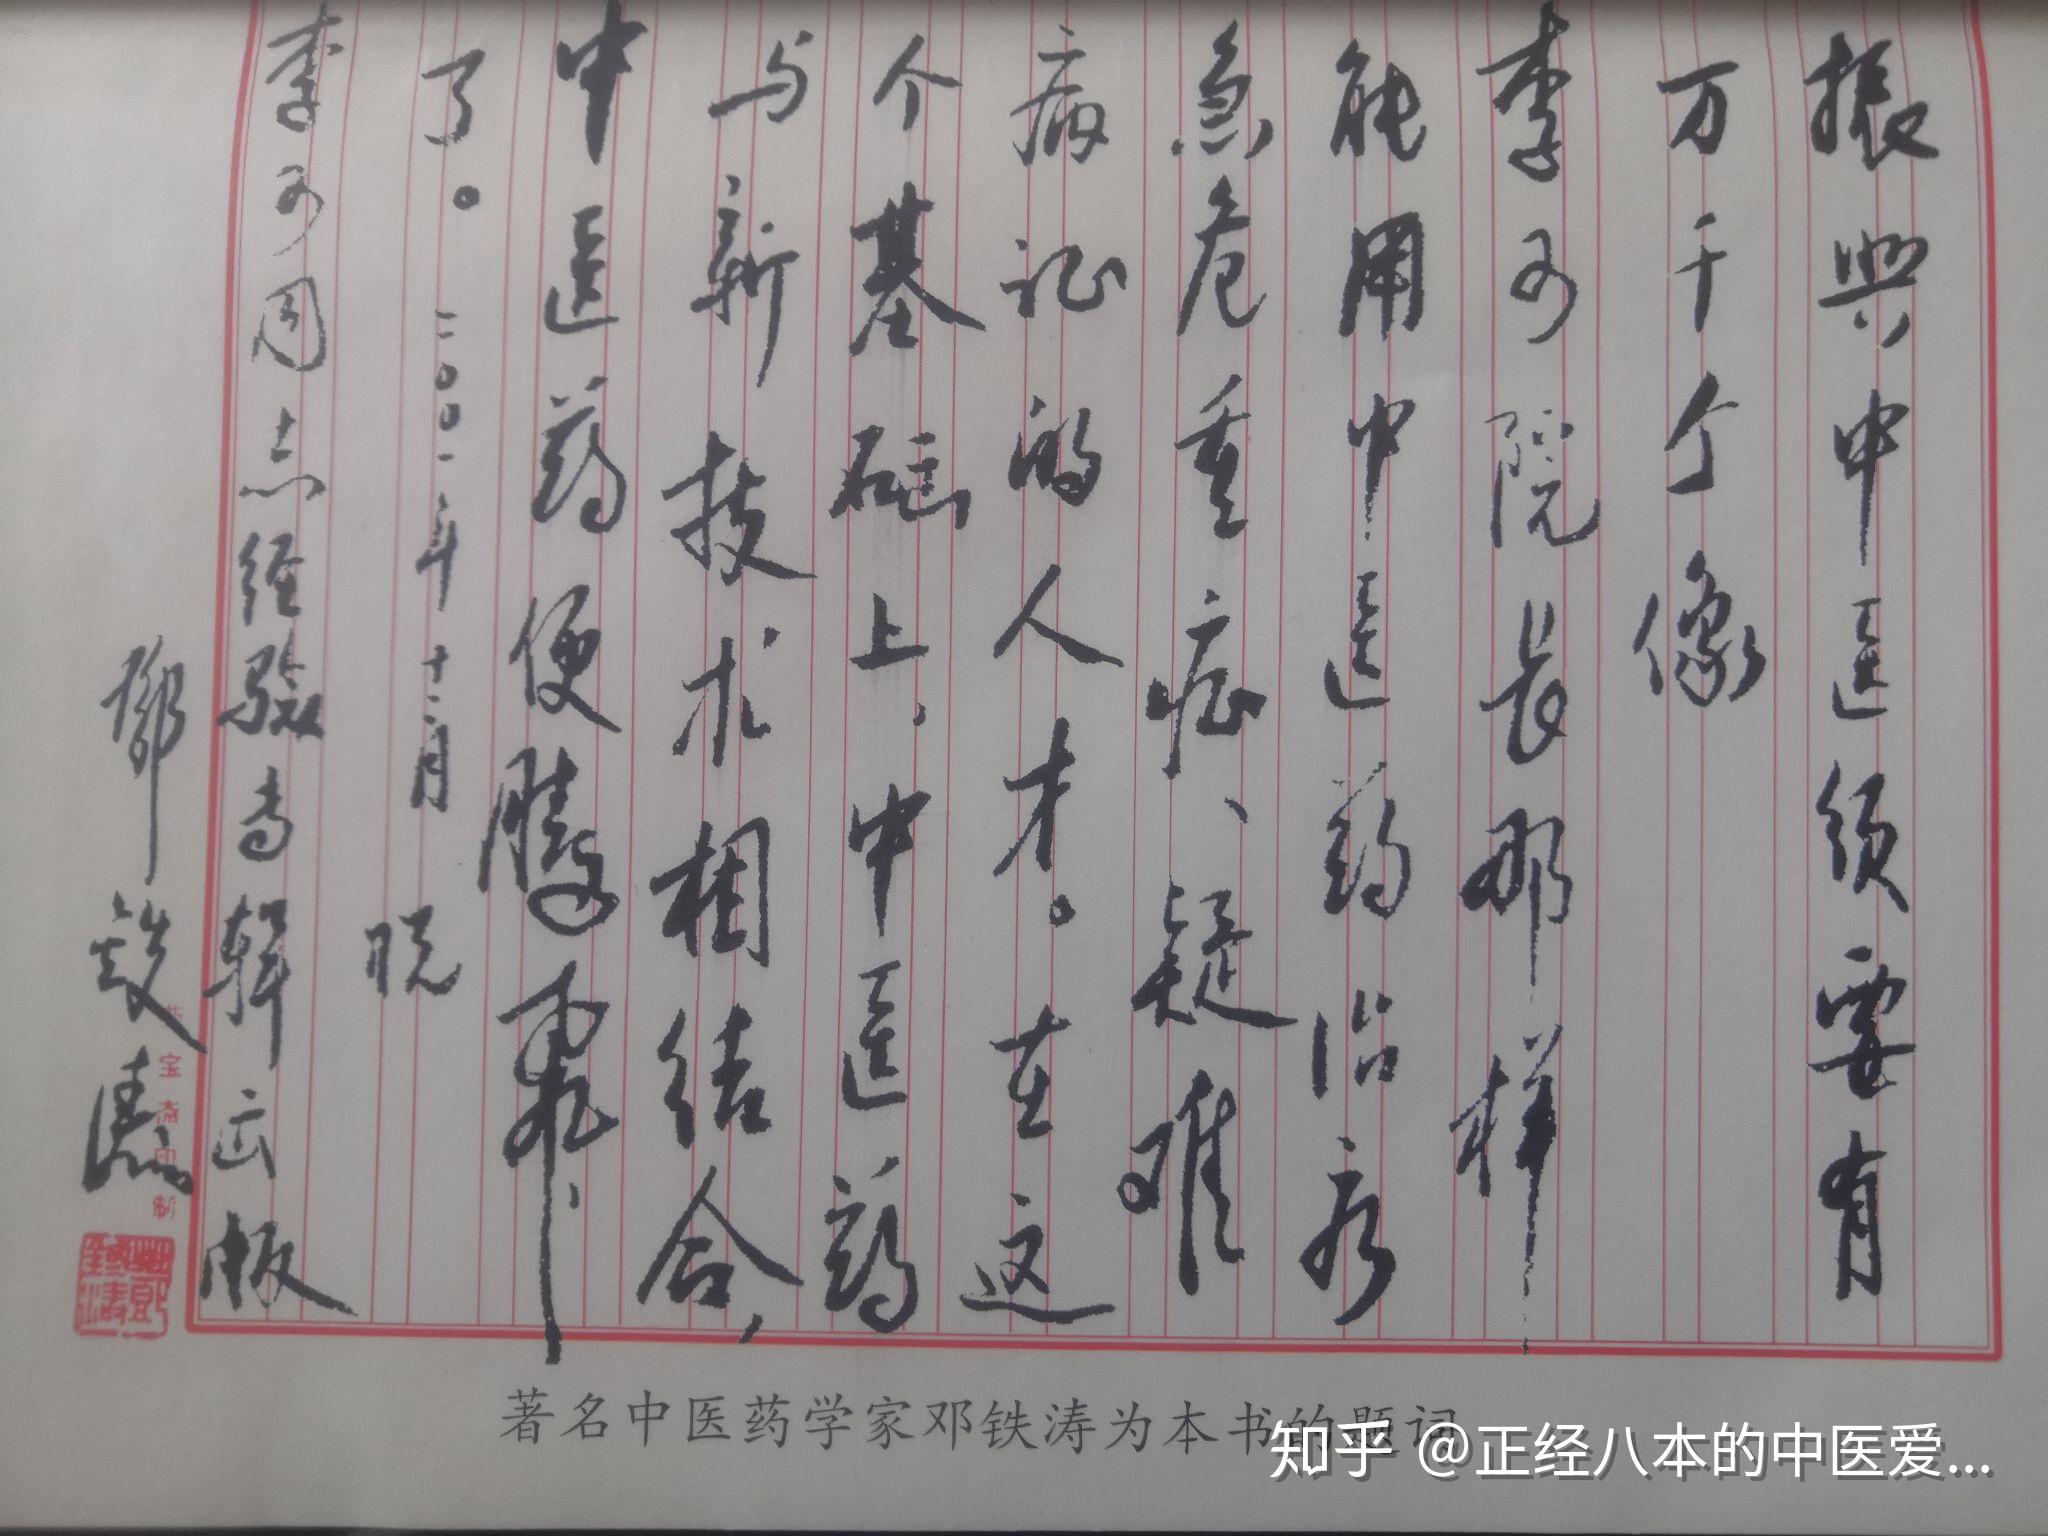 振兴中医须要有
万千个像
李可院长那样
能用中医药治疗
急危重症、疑难
病证的人才。在这
个基础上，中医药
与新技术相结合，
中医药便腾飞
了。二〇〇一年十二月
李可同志经验专辑出版
邓铁涛
宝斋印制
著名中医药学家邓铁涛为本书的题词
知乎 @正经八本的中医爱...